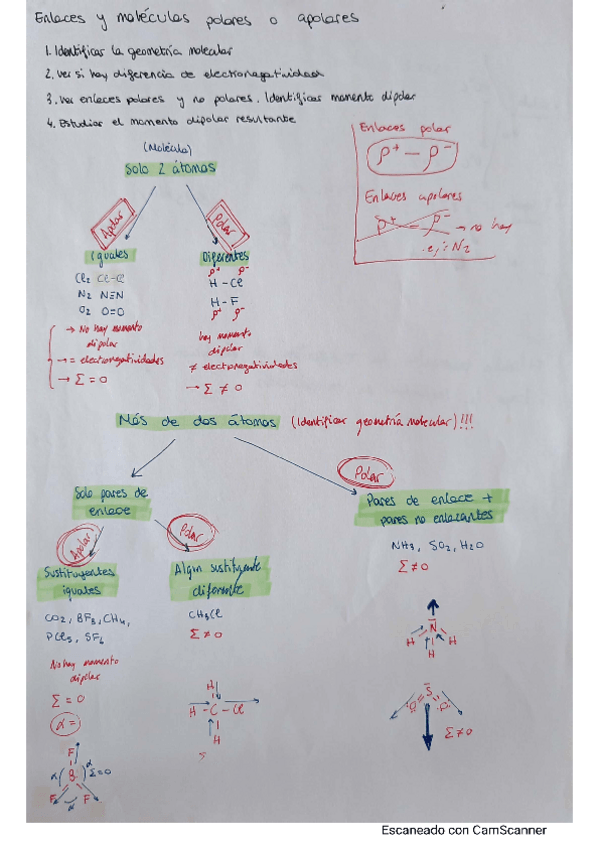 Enlaces y moléculas polares o apolares
1. Identificar la geometría molecular
2. Ver si hay diferencia de electronegatividad
3. Ver enlaces polares y no polares. Identificar momento dipolar
4. Estudiar el momento dipolar resultante
Enlaces polar
ρ+ — ρ-
Enlaces apolares
ρ+ — ρ- → no hay
ej: N2
(Molécula)
Solo 2 átomos
Apolar
Polar
Iguales
Cl2 Cl-Cl
N2 N≡N
O2 O=O
→ No hay momento
dipolar
→ = electronegatividades
→ Σ = 0
Diferentes
ρ+ ρ-
H - Cl
H - F
ρ+ ρ-
hay momento
dipolar
≠ electronegatividades
→ Σ ≠ 0
Más de dos átomos (Identificar geometría molecular)!!!
Solo pares de
enlace
Polar
Pares de enlace +
pares no enlazantes
NH3, SO2, H2O
Σ≠0
N
H H
H
S
O O
Σ≠0
Apolar
Polar
Sustituyentes
iguales
CO2, BF3, CH4,
PCl5, SF6
No hay momento
dipolar
Σ = 0
α =
F
α B α Σ=0
F F
Algún sustituyente
diferente
CH3Cl
Σ ≠ 0
H
H - C - Cl
H
Escaneado con CamScanner